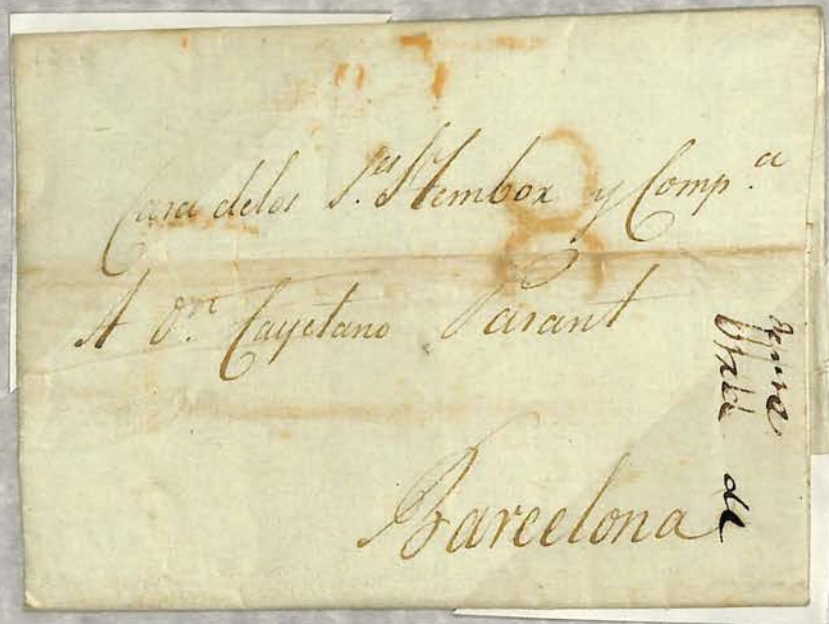 Casa delos S.res Stembor y Comp.a
A D.n Cayetano Parant
Barcelona
de